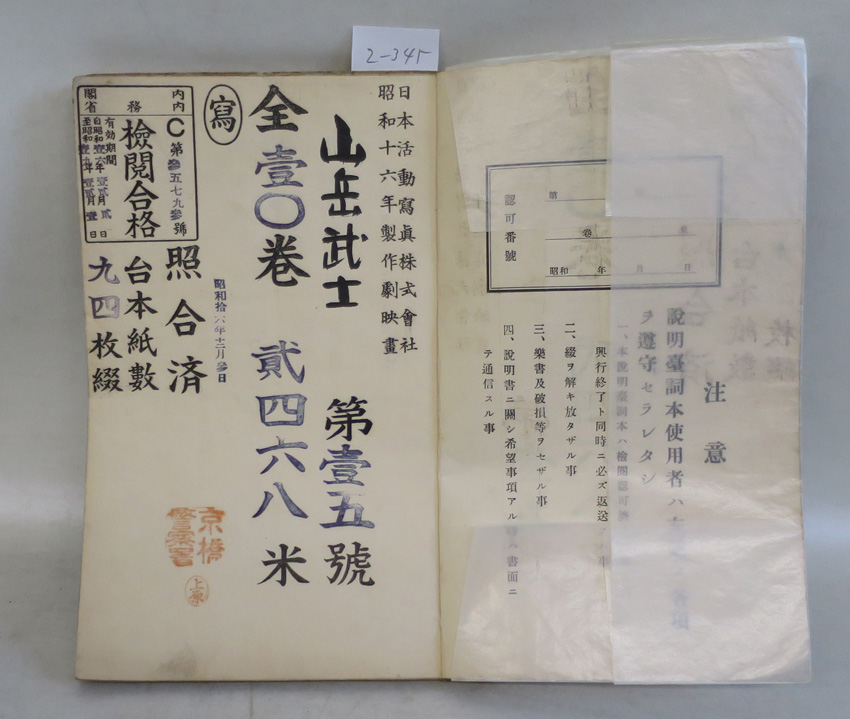 2-345
注意
說明臺詞本使用者ハ
ヲ遵守セラレタシ
一、本說明臺詞本ハ檢閲認可
興行終了ト同時ニ必ズ返送
二、綴ヲ解キ放タザル事
三、樂書及破損等ヲセザル事
四、說明書ニ關シ希望事項アル
書面ニ
テ通信スル事
認可番號
第
號
卷
昭和 年 月 日
日本活動寫眞株式會社
昭和十六年製作劇映畫
山岳武士 第壹五號
全壹〇卷 貳四六八米
寫
內務省
內閣
C第參五七九參號
檢閲合格
有効期間
自昭和壹六年壹貳月貳日
至昭和壹九年壹貳月壹日
昭和拾六年十二月參日
照合済
台本紙數
九四枚綴
京橋
警察署
上原